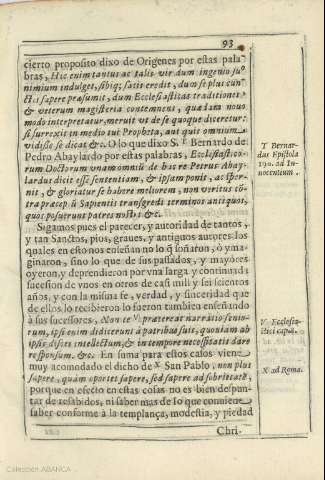 93
cierto proposito dixo de Origenes por estas pala
bras, Hic enim tantus ac talis vir dum ingenio suo
nimium indulget, sibiq; satis credit, dum se plus cun
ctis sapere præsumit, dum Ecclesiasticas traditiones
& veterum magisteria contemnens, quædam nouo
modo interpretatur, meruit vt de se quoque diceretur:
si surrexit in medio tui Propheta, aut quit omnium
vidisse se dicat &c. O lo que dixo S. T Bernardo de
Pedro Abaylardo por estas palabras, Ecclesiastico-
rum Doctorum vnam omniū de hac re Petrus Abay-
lardus dicit esse sententiam, & ipsam ponit, ac sper-
nit, & gloriatur se habere meliorem, non veritus cō-
tra præceptū Sapientis transgredi terminos antiquos,
quos posuerunt patres nostri &c.
T Bernar-
dus Epistola
190. ad In-
nocentium.
Sigamos pues el parecer, y autoridad de tantos,
y tan Sanctos, pios, graues, y antiguos autores los
quales en esto nos enseñan no lo q̄ soñaron, o yma
ginaron, sino lo que de sus passados, y mayores
oyeron, y deprendieron por vna larga y continuada
sucesion de vnos en otros de casi mill y seiscientos
años, y con la misma fe, verdad, y sinceridad que
de ellos lo recibieron lo fueron tambien enseñando
à sus sucessores, Non te V prætereat narratio senio-
rum, ipsi enim didicerunt à patribus suis, quoniam ab
ipsis disces intellectum, & in tempore necessitatis dare
responsum. &c. En suma para estos casos viene
muy acomodado el dicho de X San Pablo, non plus
sapere, quàm oportet sapere, sed sapere ad sobrietatē,
porque en efecto en estas cosas no es bien despun-
tar de resabidos, ni saber mas de lo que conuiene
saber conforme à la templança, modestia, y piedad
V. Ecclesia-
stici cap. 8.
X ad Roma.
Chri-
Colección ABANCA